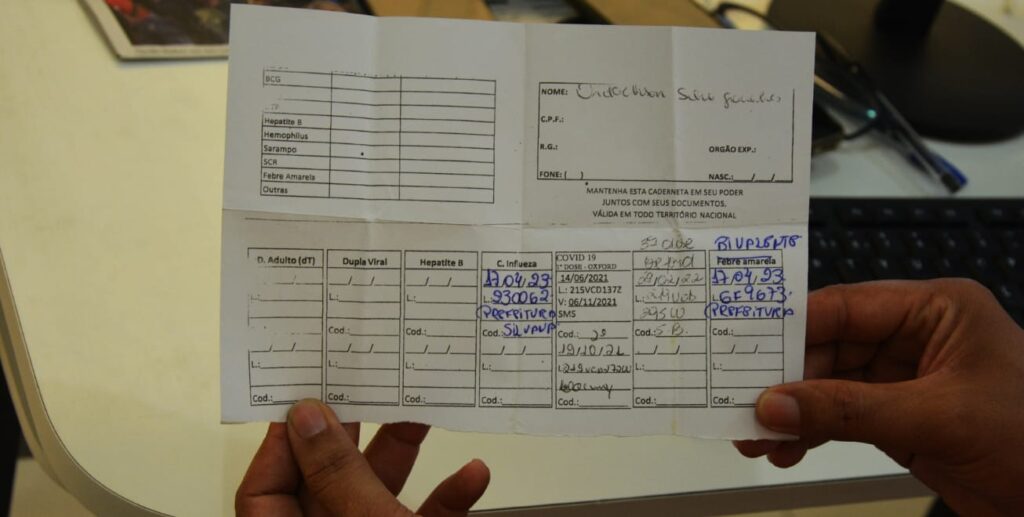 BCG
Hepatite B
Hemophilus
Sarampo
SCR
Febre Amarela
Outras
NOME:
C.P.F.:
R.G.: ORGÃO EXP.:
FONE: ( ) NASC.: / /
MANTENHA ESTA CADERNETA EM SEU PODER
JUNTOS COM SEUS DOCUMENTOS.
VÁLIDA EM TODO TERRITÓRIO NACIONAL
D. Adulto (dT)
/ /
L.:
/ /
L.:
Cod.:
Dupla Viral
/ /
L.:
Cod.:
/ /
L.:
Cod.:
Hepatite B
/ /
L.:
Cod.:
/ /
L.:
Cod.:
C. Infueza
17.04.23
L.: 930062
PREFEITURA
SILVANA
Cod.:
/ /
L.:
Cod.:
COVID 19
1ª DOSE - OXFORD
14/06/2021
L.: 215VCD137Z
V: 06/11/2021
SMS
Cod.:
19/10/21
Cod.:
L.:
Cod.:
/ /
L.:
Cod.:
BIVALENTE
Febre amarela
17.04.23
L.: GF9673
PREFEITURA
Cod.:
/ /
L.:
Cod.: